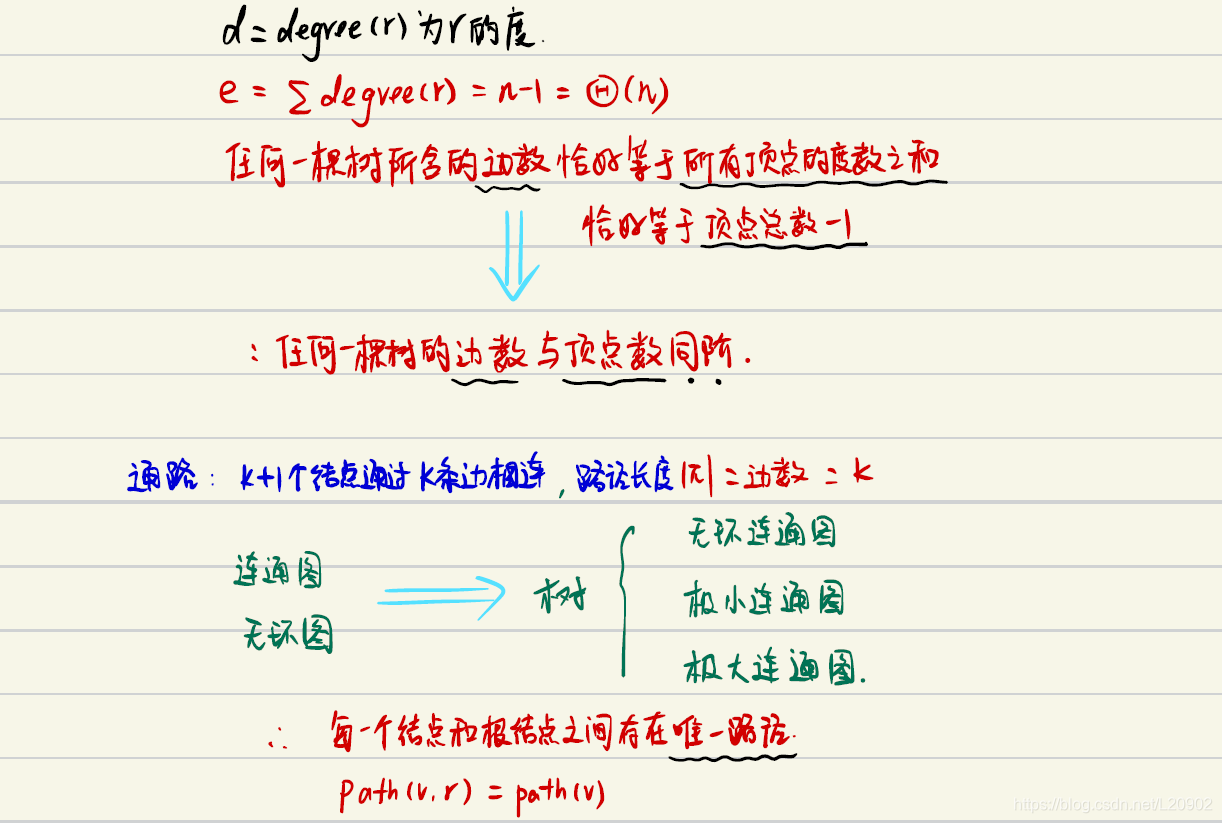 d = degree(r) 为r的度.
e = ∑ degree(r) = n-1 = Θ(n)
任何一棵树所含的边数恰好等于所有顶点的度数之和
恰好等于顶点总数-1
: 任何一棵树的边数与顶点数同阶.
通路: k+1个结点通过K条边相连, 路径长度|π| = 边数 = k
连通图
无环图
树
无环连通图
极小连通图
极大连通图.
∴ 每一个结点和根结点之间存在唯一路径.
path(v,r) = path(v)
https://blog.csdn.net/L20902